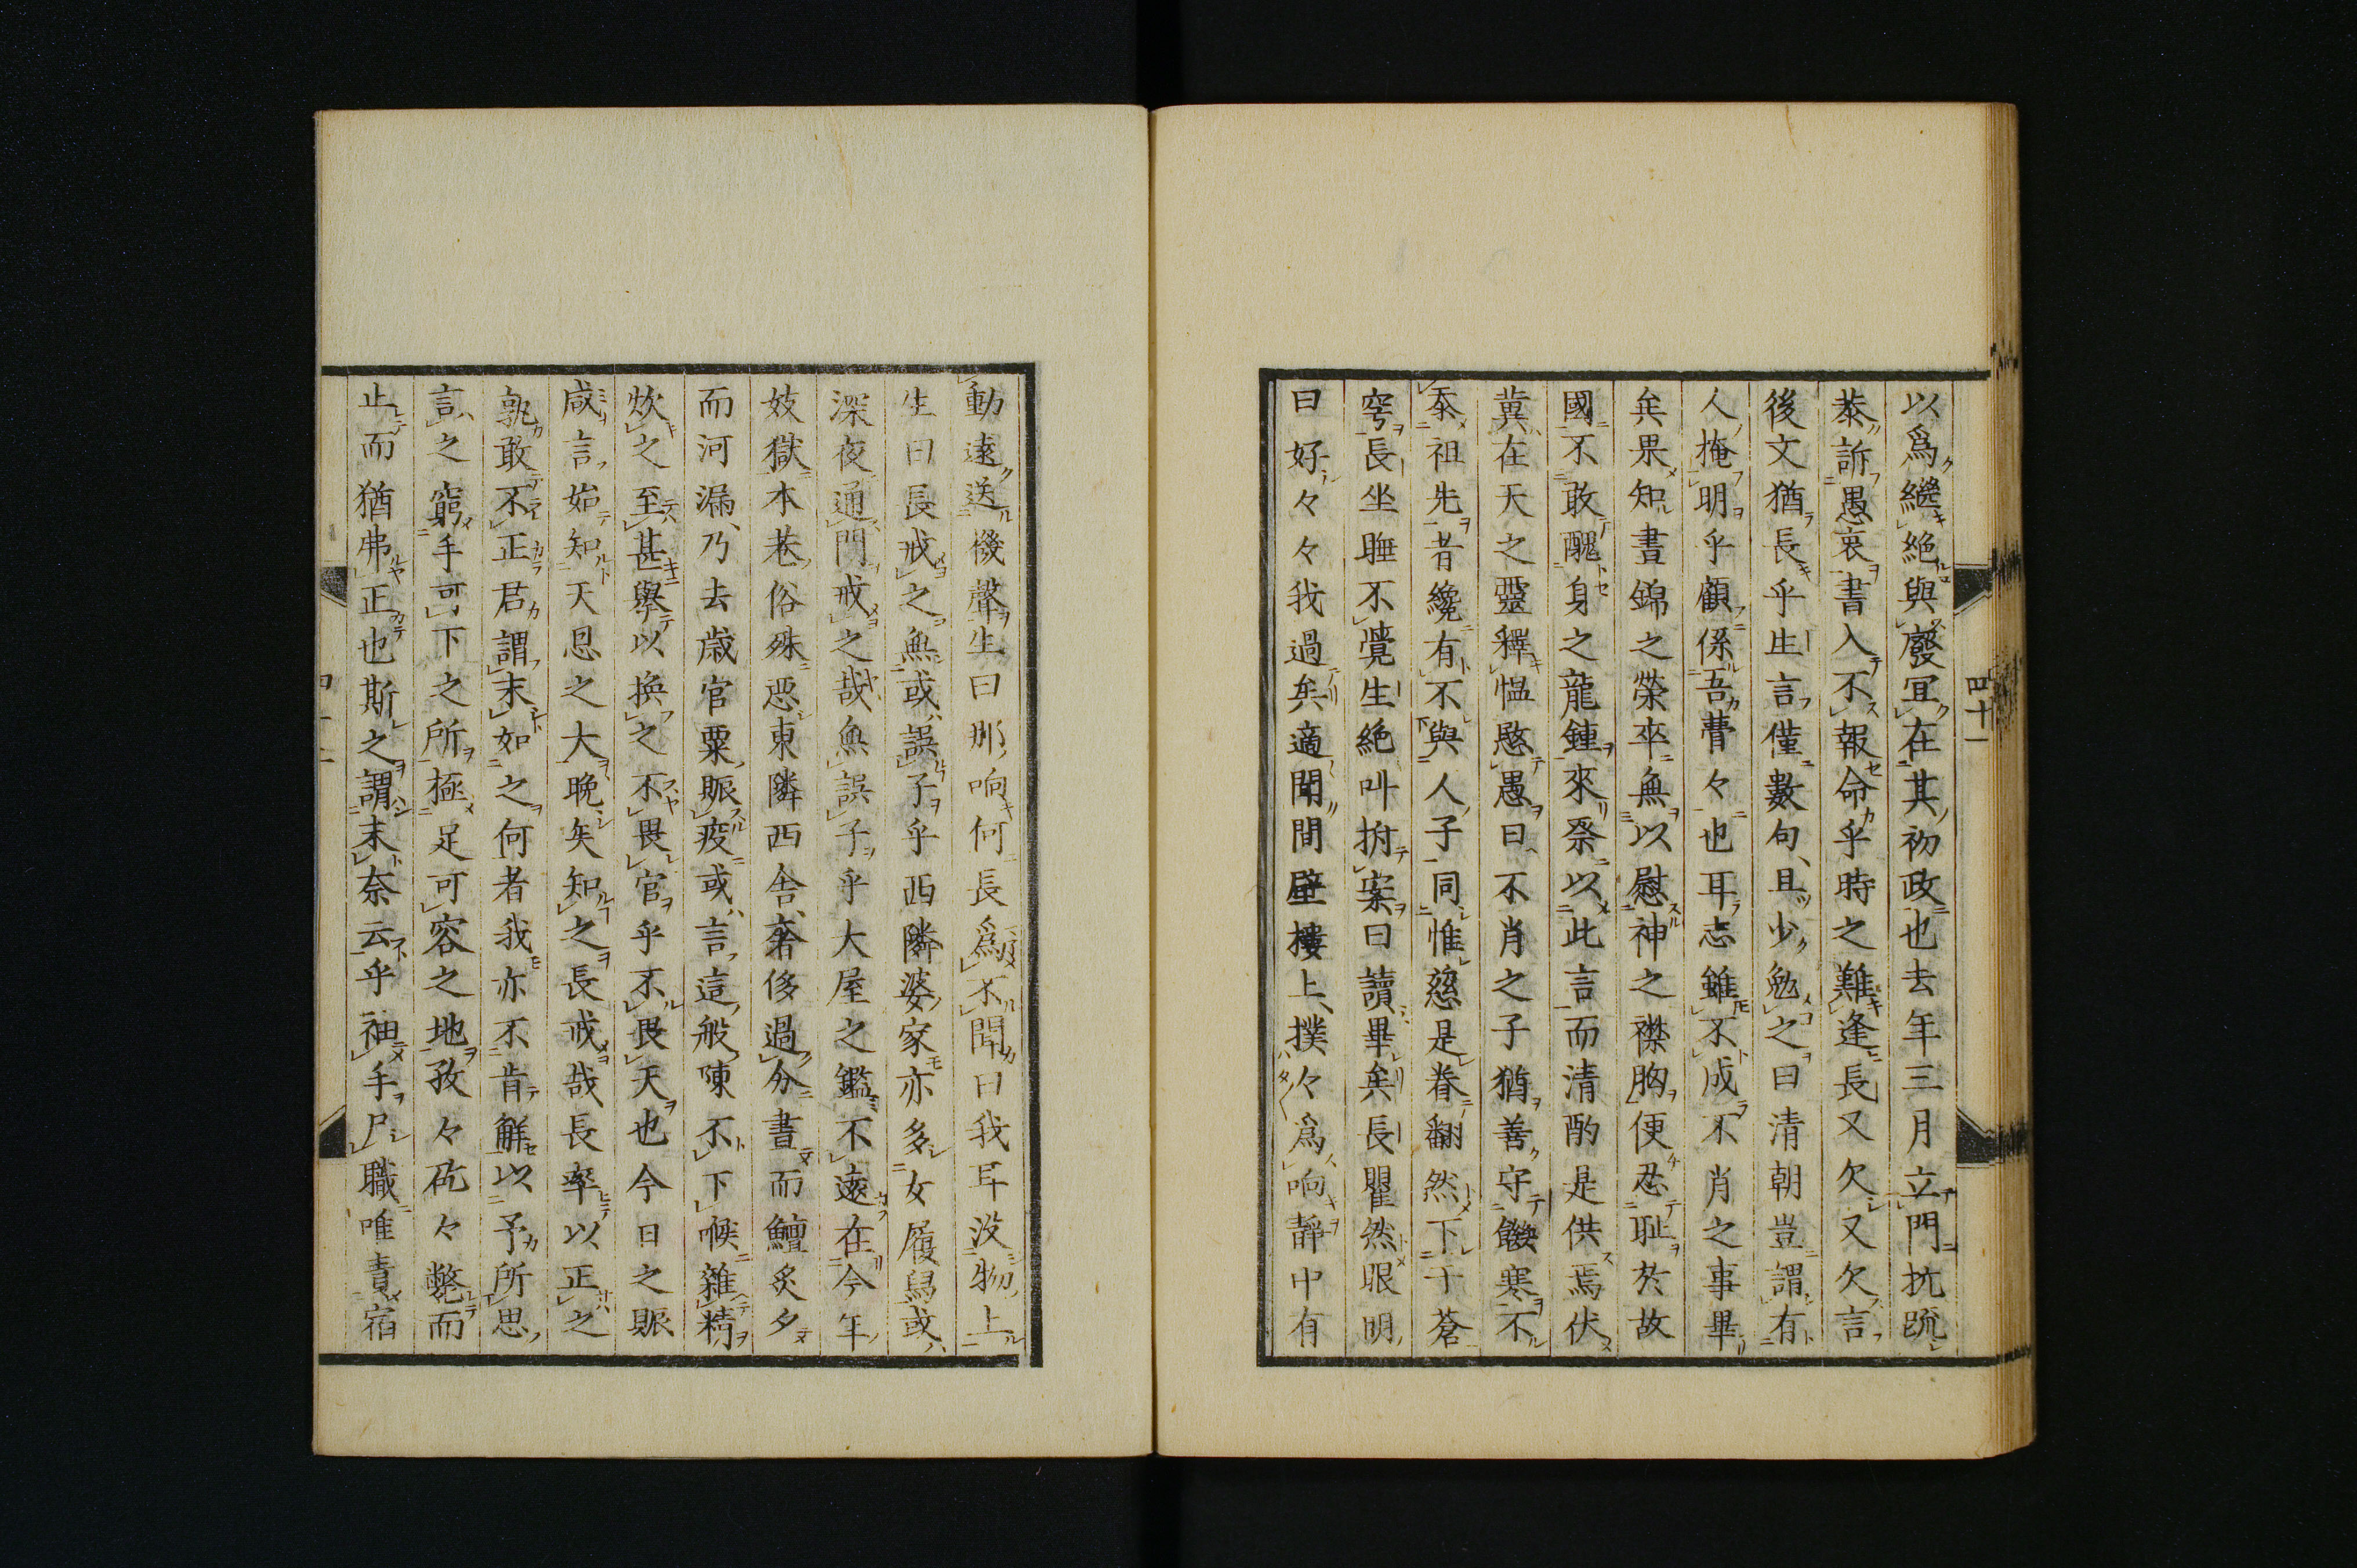 以爲繼絶與廢冝在其初政也去年三月立門抗䟽
㳟訴愚衷書入不報命乎時之難逢長又欠又欠言
後文猶長乎生言僅數句且少勉之曰清朝豈謂有
人掩明乎顧係吾曹々也耳志雖不成不肖之事畢
矣果知晝錦之榮卒無以慰神之襟胸便忍耻於故
國不敢醜身之龍鍾來祭以此言而清酌是供焉伏
冀在天之靈釋愠愍愚曰不肖之子猶善守饑寒不
忝祖先昔纔有不與人子同惟慈是眷翻然下于蒼
穹長坐睡不覺生絶叫拊案曰讀畢矣長瞿然眼明
曰好々々我過矣適聞間壁樓上撲々爲响靜中有
四十一
動遠送機聲生曰那响何長爲不聞曰我耳沒物上
生曰長戒之無或誤子乎西隣婆家亦多女履舄或
深夜通門戒之哉無誤子乎大屋之鑑不遠在今年
妓獄本巷俗殊惡東隣西舎奢侈過分晝而鱣炙夕
而河漏乃去歳官粟賑疫或言這般陳不下喉雜精
炊之至甚擧以換之不畏官乎不畏天也今日之賑
咸言始知天恩之大晩矣知之長戒哉長率以正之
孰敢不正君謂末如之何者我亦不肯解以予所思
言之窮手可下之所極足可容之地孜々矻々斃而
止而猶弗正也斯之謂末奈云乎袖手尸職唯責宿